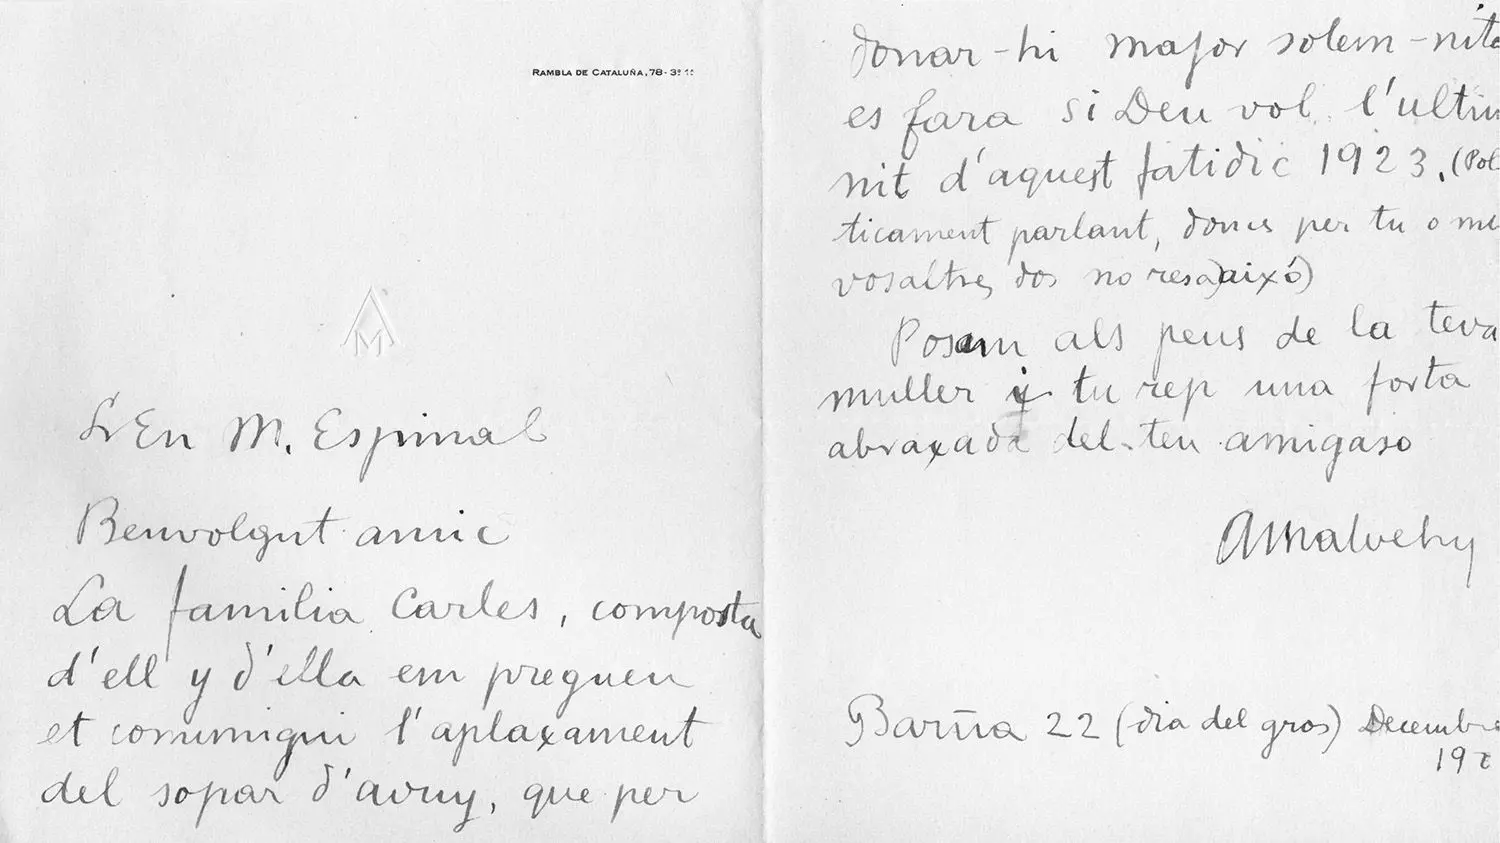 RAMBLA DE CATALUÑA, 78 - 3º 1º
AM
M. Espinal
Benvolgut amic
La familia Carles, composta
d'ell y d'ella em preguen
et comuniqui l'aplaxament
del sopar d'avuy, que per
donar-hi major solem-nita
es fara si Deu vol l'ultim
nit d'aquest fatidic 1923. (Pol
ticament parlant, doncs per tu o
vosaltres dos no resa això)
Posam als peus de la teva
muller y tu rep una forta
abraxada del teu amigaso
AMalvehy
Barna 22 (dia del gros) Decembre
192